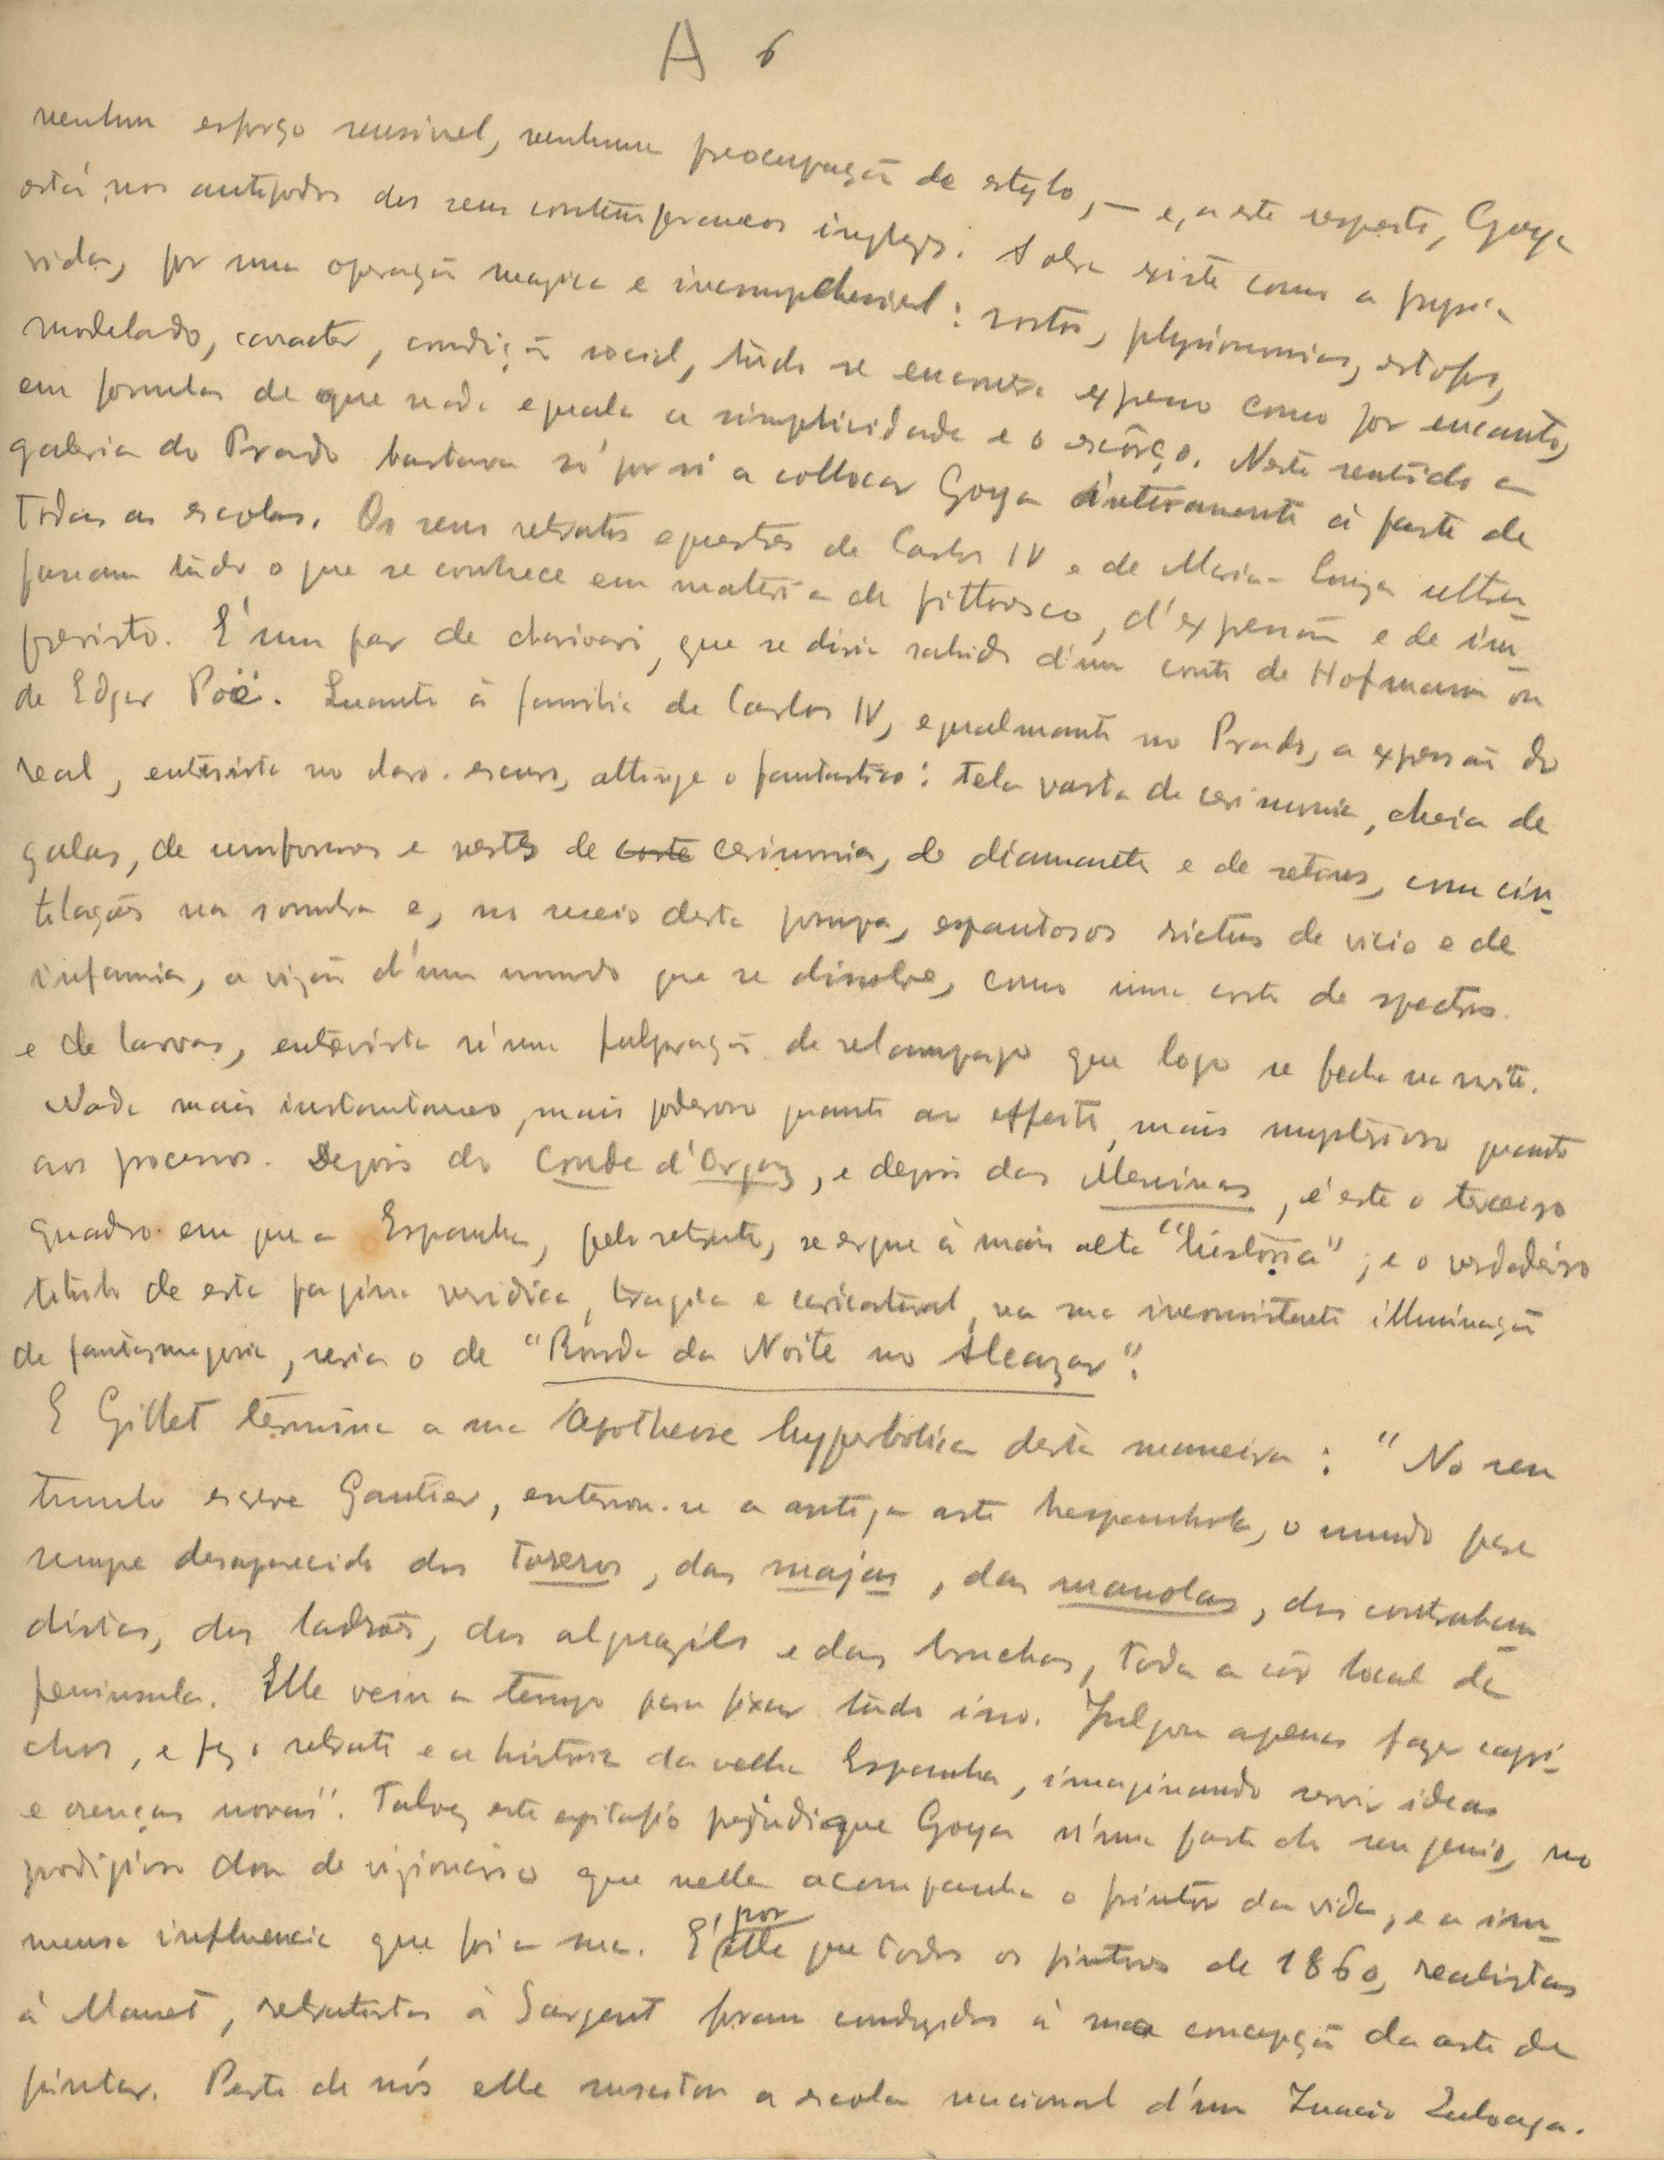 A 6
nenhum esforço sensivel, nenhuma preocupação de estylo, — e, a este respeito, Goya
está nos antipodos dos seus contemporaneos inglezes. A obra existe como a propria
vida, por uma operação magica e incomprehensivel: rostos, physionomias, estofos,
modelado, caracter, condição social, tudo se encontra expresso como por encanto,
em formulas de que nada eguala a simplicidade e o escôrço. Neste sentido a
galeria do Prado bastava só por si a collocar Goya inteiramente á parte de
todas as escolas. Os seus retratos equestres de Carlos IV e de Maria-Luiza ultra-
passam tudo o que se conhece em materia de pittoresco, d'expressão e de im-
previsto. E' um par de charivari, que se diria sahido d'um conto de Hofmann ou
de Edgar Poë. Quanto á familia de Carlos IV, egualmente no Prado, a expressão do
real, entrevista no claro-escuro, attinge o fantastico: tela vasta de cerimonia, cheia de
galas, de uniformes e vestes de corte cerimonia, de diamantes e de setins, com cin-
tilações na sombra e, no meio desta pompa, espantosos rictus de vicio e de
infamia, a visão d'um mundo que se dissolve, como uma corte de spectros
e de larvas, entrevista n'uma fulguração de relampago que logo se fecha na noite.
Nada mais instantaneo, mais poderoso quanto ao effeito, mais mysterioso quanto
aos processos. Depois do Conde d'Orgaz, e depois das Meninas, é este o terceiro
quadro em que a Espanha, pelo retrato, se ergue á mais alta "historia"; e o verdadeiro
titulo de esta pagina veridica, tragica e caricatural, na sua inconsistente illuminação
de fantasmagoria, seria o de "Ronda da Noite no Alcazar".
E Gillet termina a sua apotheose hyperbolica desta maneira: "No seu
tumulo escreve Gautier, enterrou-se a antiga arte hespanhola, o mundo para
sempre desaparecido dos toreros, das majas, das manolas, dos contraban-
distas, dos ladrões, dos alguazils e das bruchas, toda a côr local da
peninsula. Elle veiu a tempo para fixar tudo isso. Julgou apenas fazer capri-
chos, e fez o retrato e a historia da velha Espanha, imaginando servir ideas
e crenças novas". Talvez este epitafio prejudique Goya n'uma parte do seu genio, no
prodigioso dom de visionario que nelle acompanha o pintor da vida, e a im-
mensa influencia que foi a sua. E' por elle que todos os pintores de 1860, realistas
á Manet, retratistas á Sargent foram conduzidos á sua concepção da arte de
pintar. Perto de nós elle suscitou a escola nacional d'um Ignacio Zuloaga.